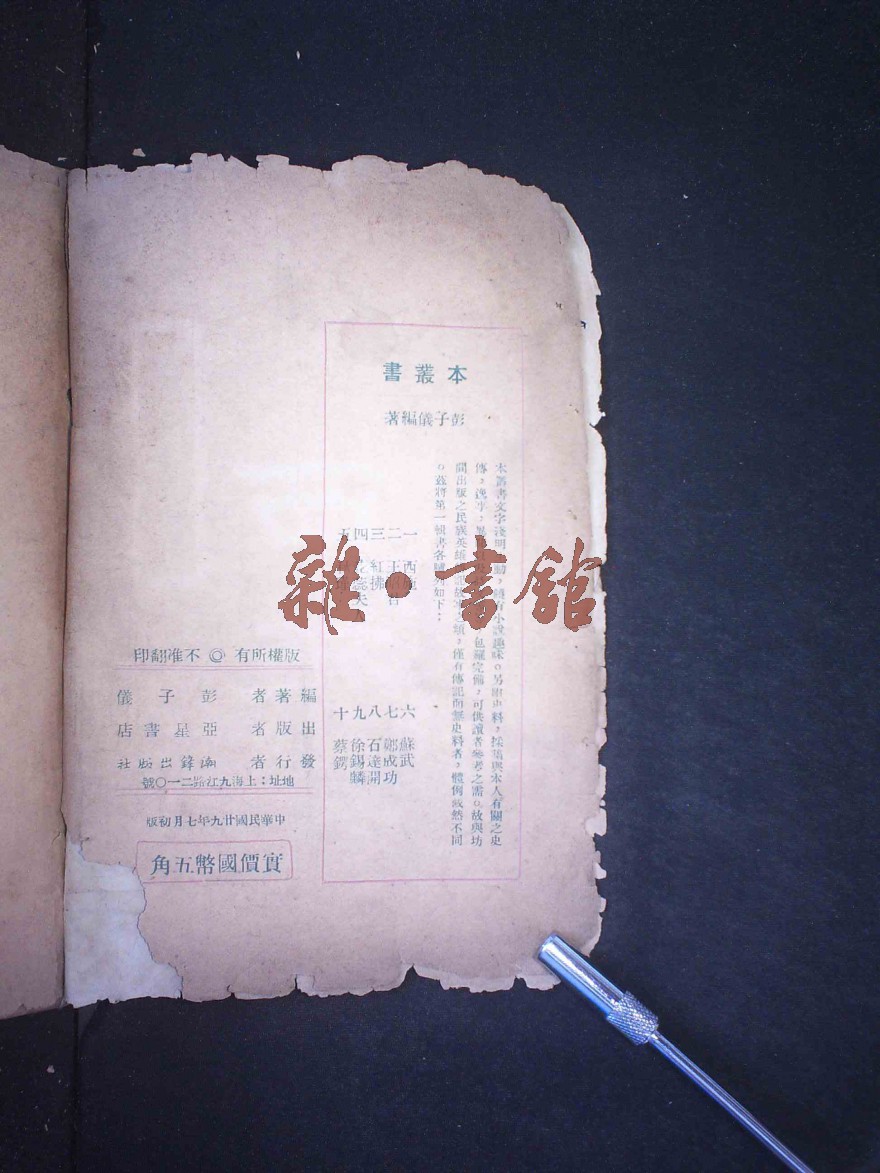 本叢書
彭子儀編著
本叢書文字淺明
小說趣味。另附史料,採集與本人有關之史
傳,逸事,異
包羅完備,可供讀者參考之需。故與坊
間出版之民族英雄
故事之類,僅有傳記而無史料者,體例成然不同
。茲將第一輯書名臚列如下:
一 西施
二 王昭君
三 紅拂
四 夫
五
六 蘇武
七 鄭成功
八 石達開
九 徐錫麟
十 蔡鍔
版權所有 ◎ 不准翻印
編著者 彭子儀
出版者 亞星書店
發行者 潮鋒出版社
地址:上海九江路二一〇號
中華民國廿九年七月初版
實價國幣五角
雜·書館